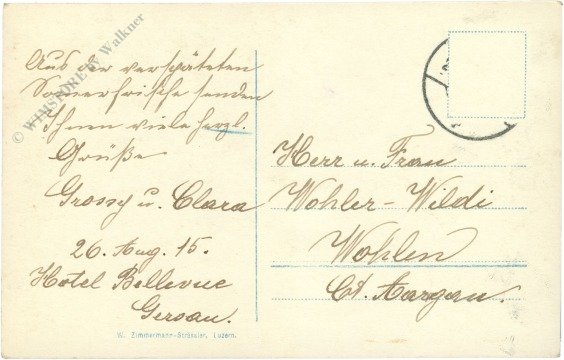 Aus der verspäteten
Sommerfrische senden
Ihnen viele herzl.
Grüße
Grossy u. Clara
26. Aug. 15.
Hotel Bellevue
Gersau.
Herr u. Frau
Wohler-Wildi
Wohlen
Ct. Aargau.
W. Zimmermann-Strässler, Luzern.
© WIMSPORE by Walkner